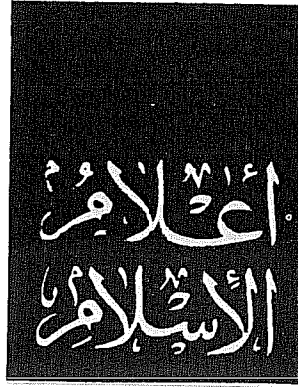 أعلامُ
الإسلامِ